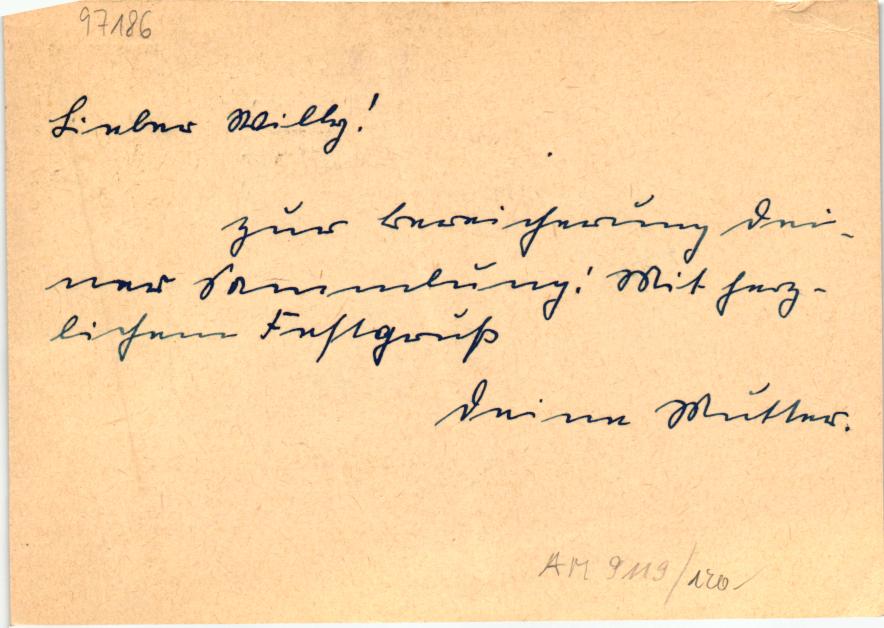 97186
Lieber Willy!
zur bereicherung dei-
ner Sammlung! Mit herz-
lichem Festgruß
deine Mutter.
AM 9119/120